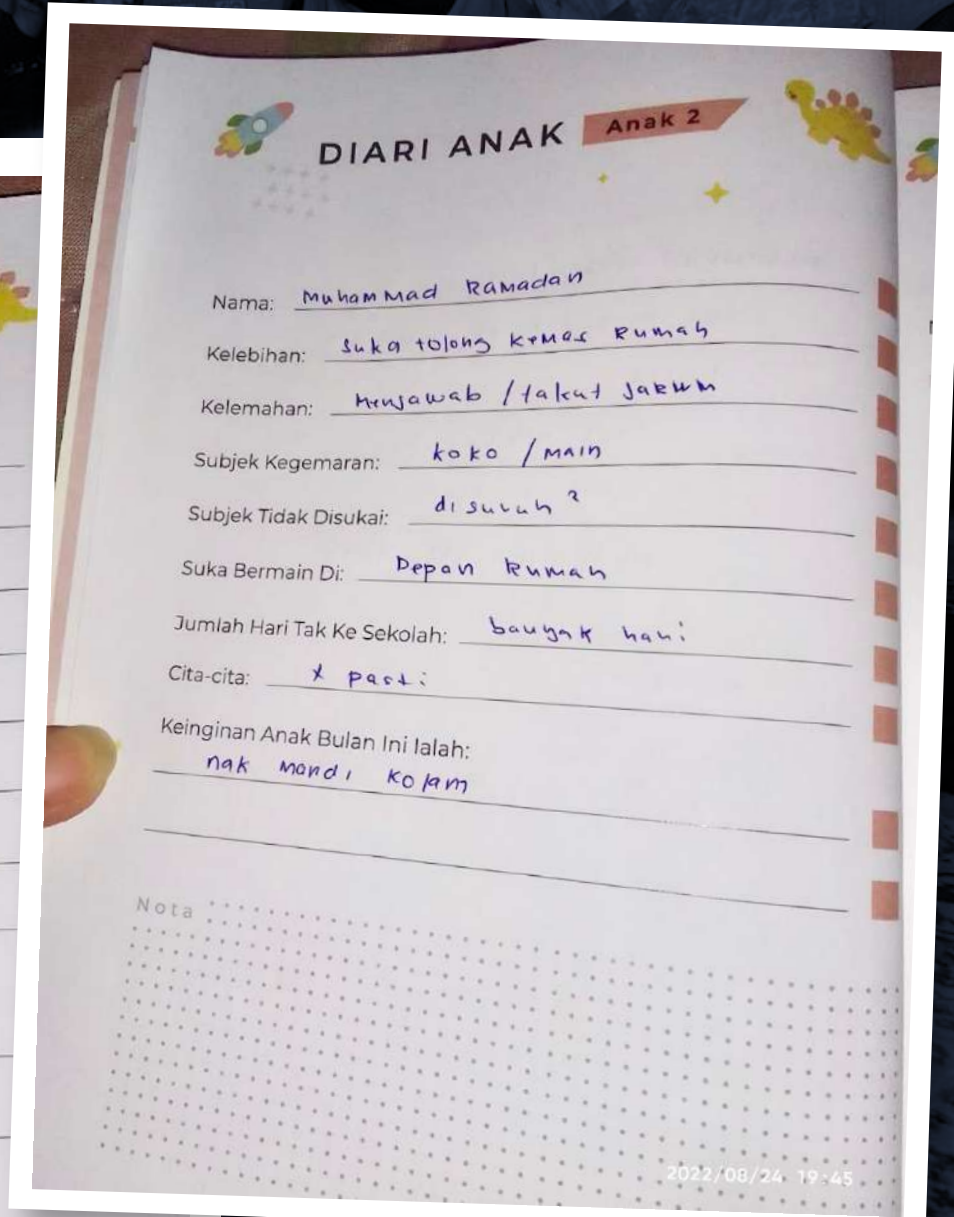 DIARI ANAK Anak 2
Nama: Muhammad Ramadan
Kelebihan: Suka tolong kemas Rumah
Kelemahan: Menjawab / takut jarum
Subjek Kegemaran: koko / Main
Subjek Tidak Disukai: disuruh 2
Suka Bermain Di: Depan Rumah
Jumlah Hari Tak Ke Sekolah: banyak hari
Cita-cita: x pasti
Keinginan Anak Bulan Ini Ialah:
nak mandi kolam
Nota
2022/08/24 19:45